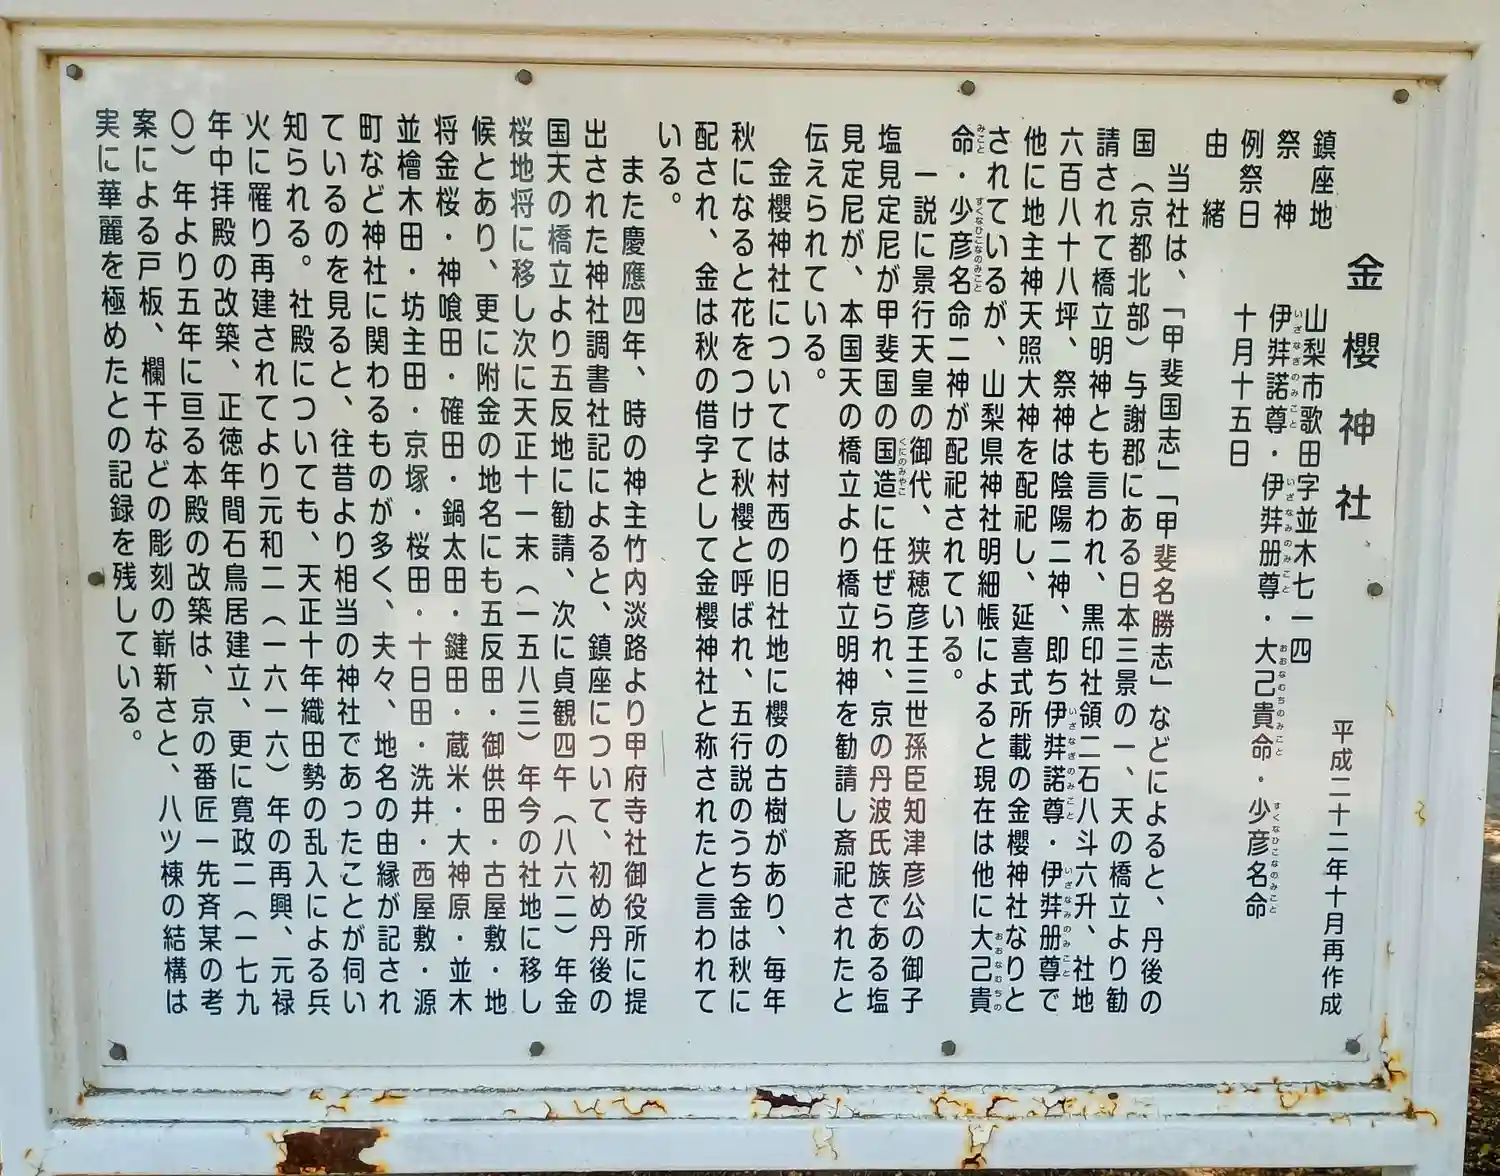 金櫻神社
平成二十二年十月再作成
鎮座地　山梨市歌田字並木七一四
祭神　伊弉諾尊・伊弉册尊・大己貴命・少彦名命
いざなぎのみこと　いざなみのみこと　おおなむちのみこと　すくなひこなのみこと
例祭日　十月十五日
由緒
当社は、「甲斐国志」「甲斐名勝志」などによると、丹後の
国（京都北部）与謝郡にある日本三景の一、天の橋立より勧
請されて橋立明神とも言われ、黒印社領二石八斗六升、社地
六百八十八坪、祭神は陰陽二神、即ち伊弉諾尊・伊弉册尊で
いざなぎのみこと　いざなみのみこと
他に地主神天照大神を配祀し、延喜式所載の金櫻神社なりと
されているが、山梨県神社明細帳によると現在は他に大己貴
おおなむちの
命・少彦名命二神が配祀されている。
みこと　すくなひこなのみこと
一説に景行天皇の御代、狭穂彦王三世孫臣知津彦公の御子
塩見定尼が甲斐国の国造に任ぜられ、京の丹波氏族である塩
くにのみやこ
見定尼が、本国天の橋立より橋立明神を勧請し斎祀されたと
伝えられている。
金櫻神社については村西の旧社地に櫻の古樹があり、毎年
秋になると花をつけて秋櫻と呼ばれ、五行説のうち金は秋に
配され、金は秋の借字として金櫻神社と称されたと言われて
いる。
また慶應四年、時の神主竹内淡路より甲府寺社御役所に提
出された神社調書社記によると、鎮座について、初め丹後の
国天の橋立より五反地に勧請、次に貞観四午（八六二）年金
桜地将に移し次に天正十一末（一五八三）年今の社地に移し
候とあり、更に附金の地名にも五反田・御供田・古屋敷・地
将金桜・神喰田・確田・鍋太田・鍵田・蔵米・大神原・並木
並檜木田・坊主田・京塚・桜田・十日田・洗井・西屋敷・源
町など神社に関わるものが多く、夫々、地名の由縁が記され
ているのを見ると、往昔より相当の神社であったことが伺い
知られる。社殿についても、天正十年織田勢の乱入による兵
火に罹り再建されてより元和二（一六一六）年の再興、元禄
年中拝殿の改築、正徳年間石鳥居建立、更に寛政二（一七九
〇）年より五年に亘る本殿の改築は、京の番匠一先斉某の考
案による戸板、欄干などの彫刻の嶄新さと、八ツ棟の結構は
実に華麗を極めたとの記録を残している。